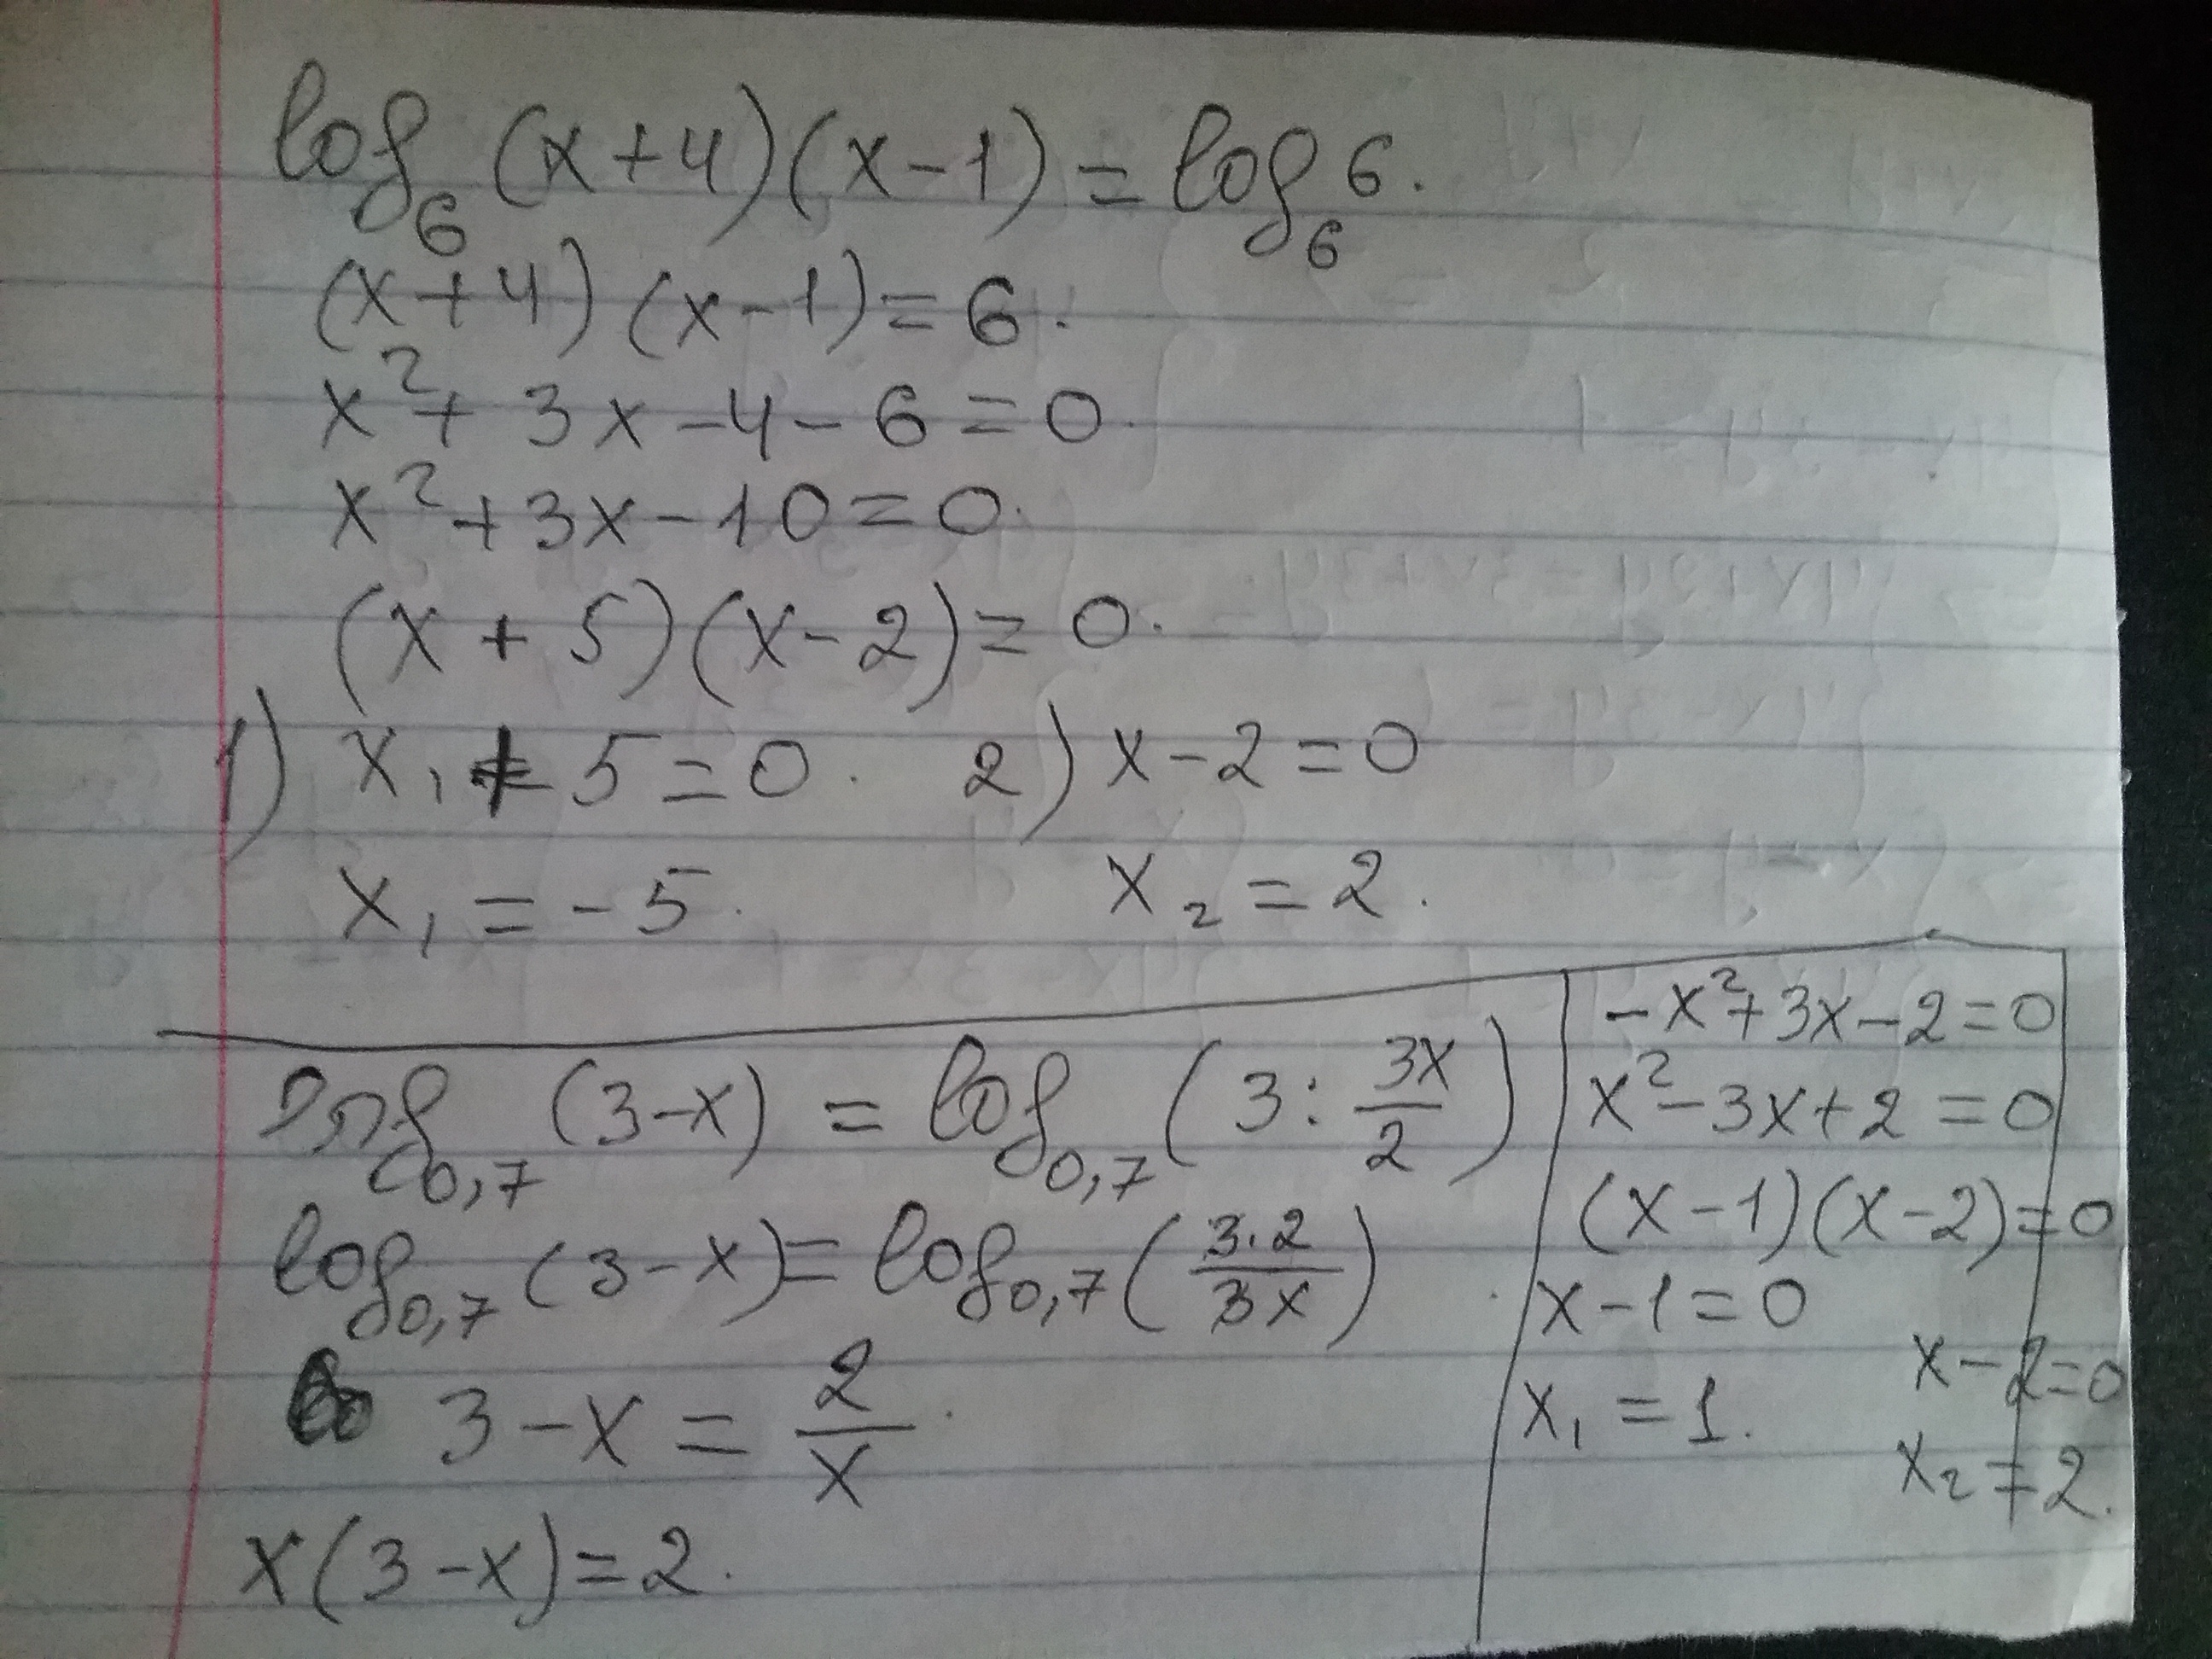 log₆ (x+4)(x-1) = log₆ 6.
(x+4)(x-1) = 6.
x² + 3x - 4 - 6 = 0.
x² + 3x - 10 = 0.
(x + 5)(x - 2) = 0.
1) x₁ + 5 = 0. 2) x - 2 = 0
x₁ = -5. x₂ = 2.
log₀,₇ (3-x) = log₀,₇ (3 : 3x/2)
log₀,₇ (3-x) = log₀,₇ (3·2/3x)
3 - x = 2/x.
x(3-x) = 2.
-x² + 3x - 2 = 0
x² - 3x + 2 = 0
(x-1)(x-2) = 0
x - 1 = 0
x - 2 = 0
x₁ = 1.
x₂ = 2.